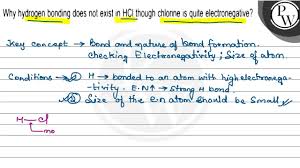 Why hydrogen bonding does not exist in HCl though chlorine is quite electronegative?
PW
Key concept → Bond and nature of bond formation.
checking Electronegativity; Size of atom.
Conditions → ① H → bonded to an atom with high electronega
-tivity. E.N↑ → strong H bond.
② Size of the e.n atom should be small
H – Cl
→ no